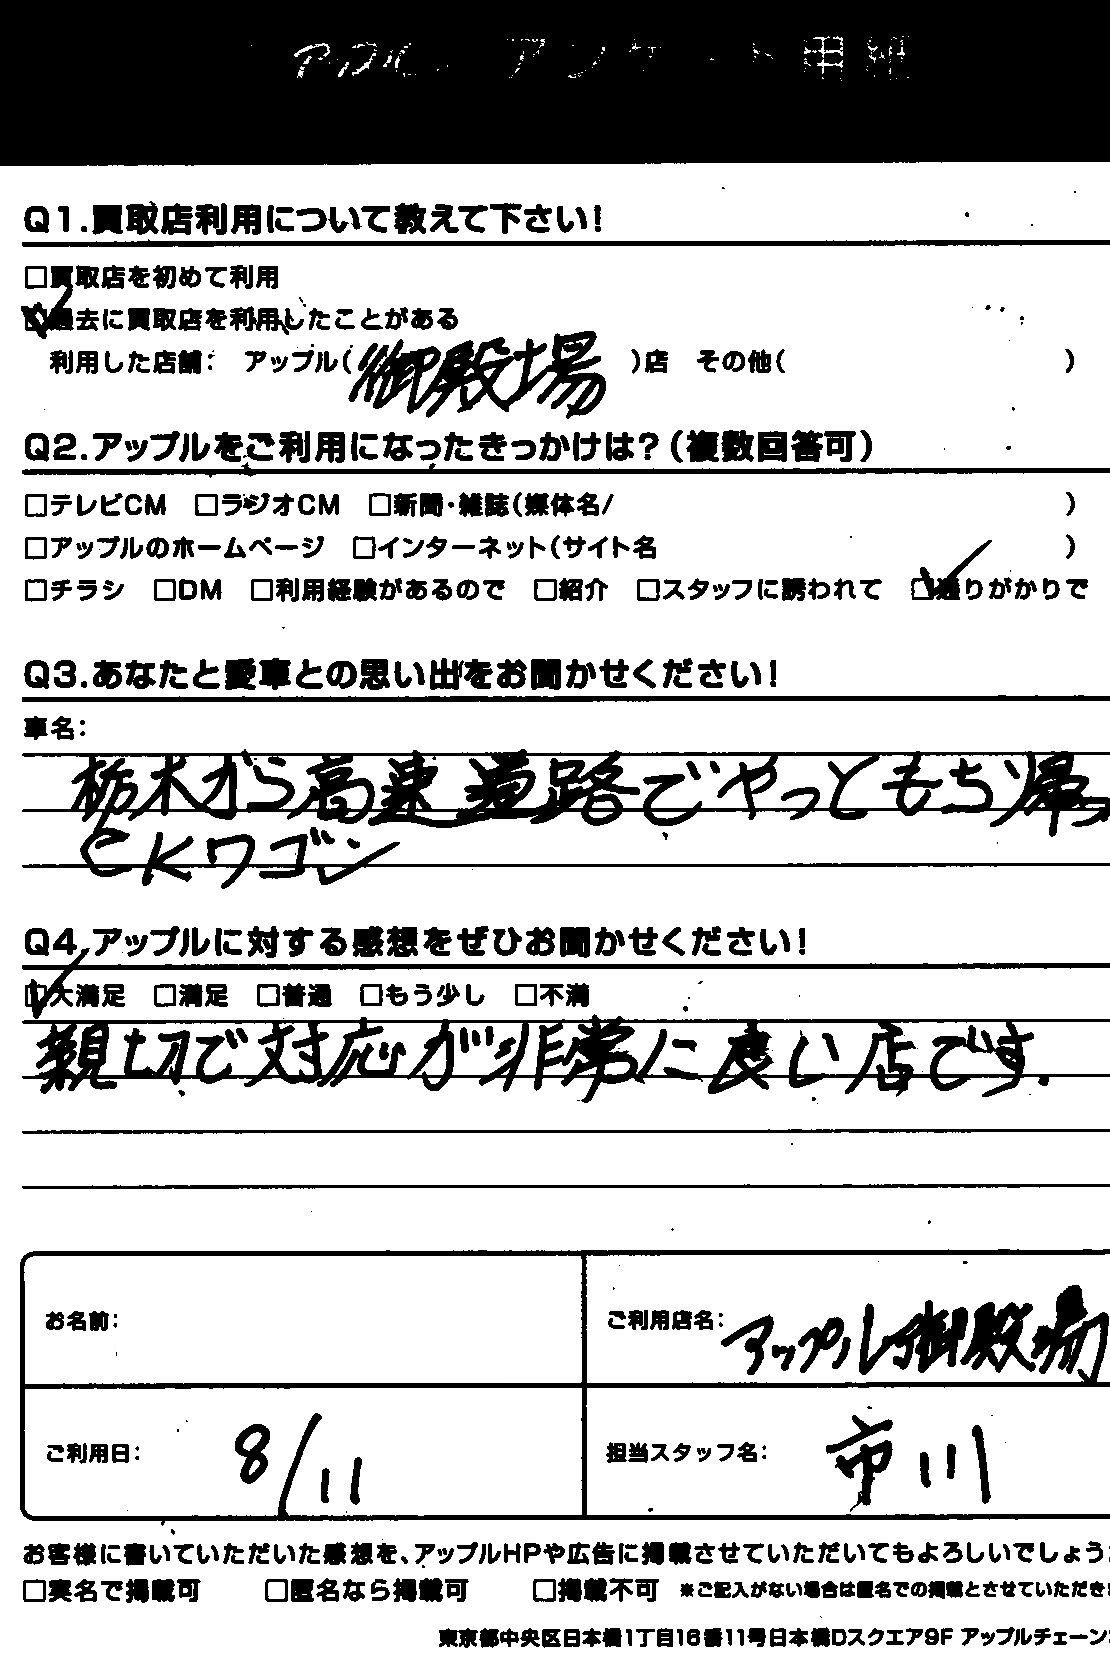 アップル アンケート用紙
Q1.買取店利用について教えて下さい!
□買取店を初めて利用
☑過去に買取店を利用したことがある
利用した店舗: アップル(御殿場)店 その他( )
Q2.アップルをご利用になったきっかけは?(複数回答可)
□テレビCM □ラジオCM □新聞・雑誌(媒体名/ )
□アップルのホームページ □インターネット(サイト名 )
□チラシ □DM □利用経験があるので □紹介 □スタッフに誘われて ☑通りがかりで
Q3.あなたと愛車との思い出をお聞かせください!
車名:
栃木から高速道路でやっともち帰っ
CKワゴン
Q4.アップルに対する感想をぜひお聞かせください!
☑大満足 □満足 □普通 □もう少し □不満
親切で対応が非常に良い店です.
お名前:
ご利用店名: アップル御殿場
ご利用日: 8/11
担当スタッフ名: 市川
お客様に書いていただいた感想を、アップルHPや広告に掲載させていただいてもよろしいでしょう
□実名で掲載可 □匿名なら掲載可 □掲載不可 ※ご記入がない場合は匿名での掲載とさせていただき
東京都中央区日本橋1丁目16番11号日本橋Dスクエア9F アップルチェーン